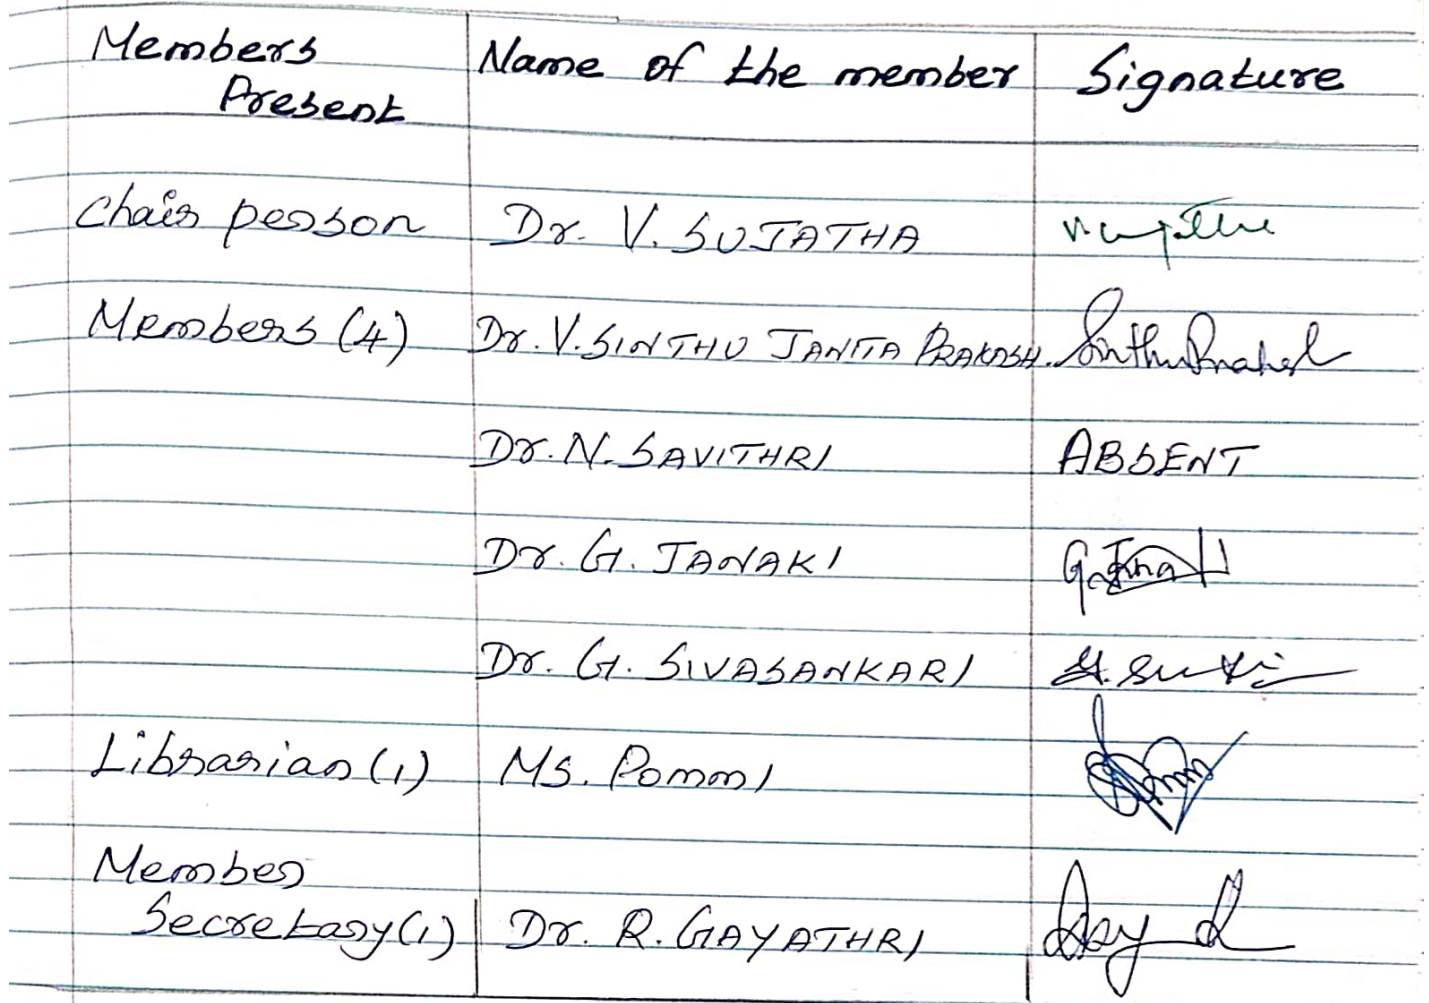 Members Present | Name of the member | Signature
Chair person | Dr. V. SUJATHA
Members (4) | Dr. V. SINTHU JANITA PRAKASH. | Sinthu Prakash
Dr. N. SAVITHRI | ABSENT
Dr. G. JANAKI | G. Janaki
Dr. G. SIVASANKARI
Librarian (1) | MS. POMMI
Member Secretary (1) | Dr. R. GAYATHRI